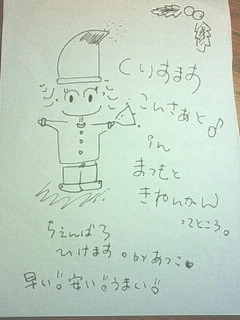 くりすます
こんさあと♪
in
まつもと
きわいかん
ってところ。
ちぇんばろ
ひけます。by あつこ
早い!安い!うまい!